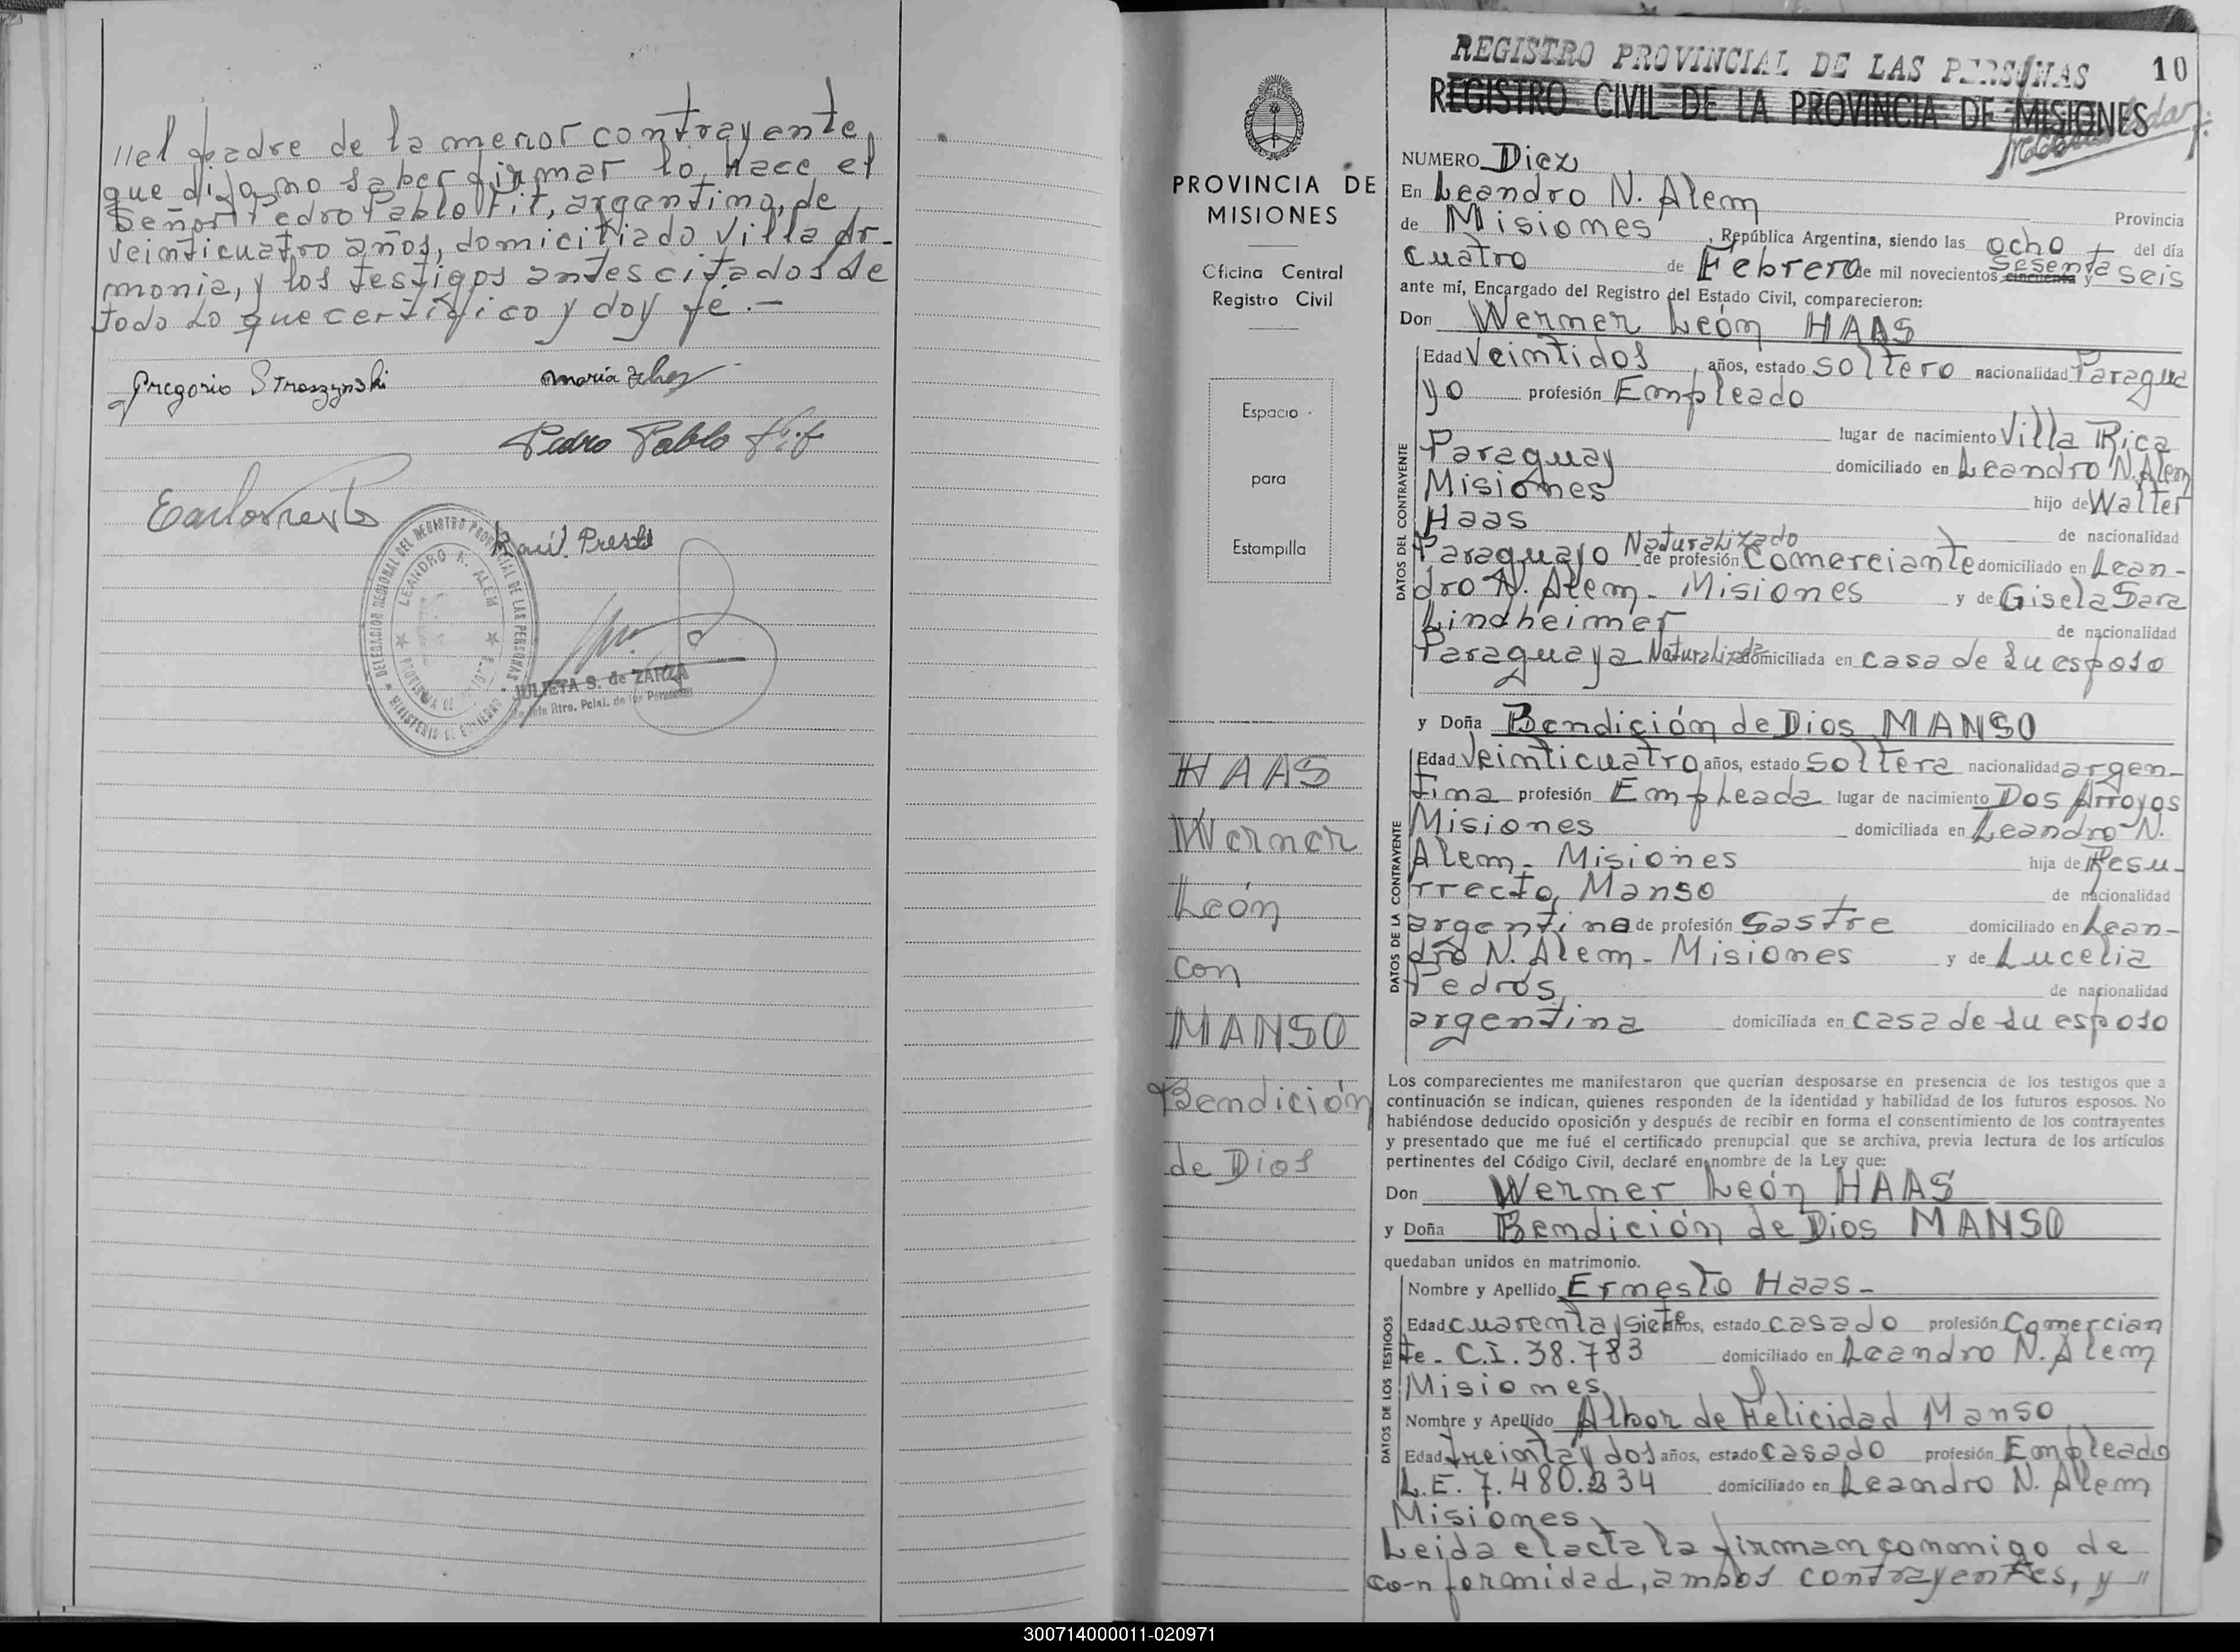 //el padre de la menor contrayente,
que dijo no saber firmar lo hace el
Señor Pedro Pablo Fit, argentino, de
veinticuatro años, domiciliado Villa Ar-
monia, y los testigos antes citados de
todo lo que certifico y doy fe.—
Gregorio Stroszynski
Maria
Pedro Pablo Fit
Raúl Presto
DELEGACION REGIONAL DEL REGISTRO PROVINCIAL DE LAS PERSONAS
LEANDRO N. ALEM
JULIETA S. de ZARZA
PROVINCIA DE
MISIONES
Oficina Central
Registro Civil
Espacio
para
Estampilla
HAAS
Werner
León
con
MANSO
Bendición
de Dios
REGISTRO PROVINCIAL DE LAS PERSONAS 10
REGISTRO CIVIL DE LA PROVINCIA DE MISIONES
NUMERO Diez
En Leandro N. Alem Provincia
de Misiones, República Argentina, siendo las ocho del día
cuatro de Febrero de mil novecientos cincuenta sesenta y seis
ante mí, Encargado del Registro del Estado Civil, comparecieron:
Don Werner León HAAS
DATOS DEL CONTRAYENTE
Edad Veintidos años, estado soltero nacionalidad Paragua
yo profesión Empleado
lugar de nacimiento Villa Rica
Paraguay domiciliado en Leandro N. Alem
Misiones hijo de Walter
Haas de nacionalidad
Paraguayo Naturalizado de profesión Comerciante domiciliado en Lean-
dro N. Alem - Misiones y de Gisela Sara
Lindheimer de nacionalidad
Paraguaya Naturalizada domiciliada en casa de su esposo
y Doña Bendición de Dios MANSO
DATOS DE LA CONTRAYENTE
Edad Veinticuatro años, estado soltera nacionalidad argen-
tina profesión Empleada lugar de nacimiento Dos Arroyos
Misiones domiciliada en Leandro N.
Alem - Misiones hija de Resu-
rrecto Manso de nacionalidad
argentina de profesión Sastre domiciliado en Lean-
dro N. Alem - Misiones y de Lucelia
Pedros de nacionalidad
argentina domiciliada en casa de su esposo
Los comparecientes me manifestaron que querian desposarse en presencia de los testigos que a
continuación se indican, quienes responden de la identidad y habilidad de los futuros esposos. No
habiéndose deducido oposición y después de recibir en forma el consentimiento de los contrayentes
y presentado que me fué el certificado prenupcial que se archiva, previa lectura de los artículos
pertinentes del Código Civil, declaré en nombre de la Ley que:
Don Werner León HAAS
y Doña Bendición de Dios MANSO
quedaban unidos en matrimonio.
DATOS DE LOS TESTIGOS
Nombre y Apellido Ernesto Haas -
Edad cuarenta y siete años, estado casado profesión Comercian
te - C.I. 38.783 domiciliado en Leandro N. Alem
Misiones
Nombre y Apellido Albor de Felicidad Manso
Edad treinta y dos años, estado casado profesión Empleado
L.E. 7.480.234 domiciliado en Leandro N. Alem
Misiones
Leida el acta la firman conmigo de
co-n formidad, ambos contrayentes, y //
300714000011-020971